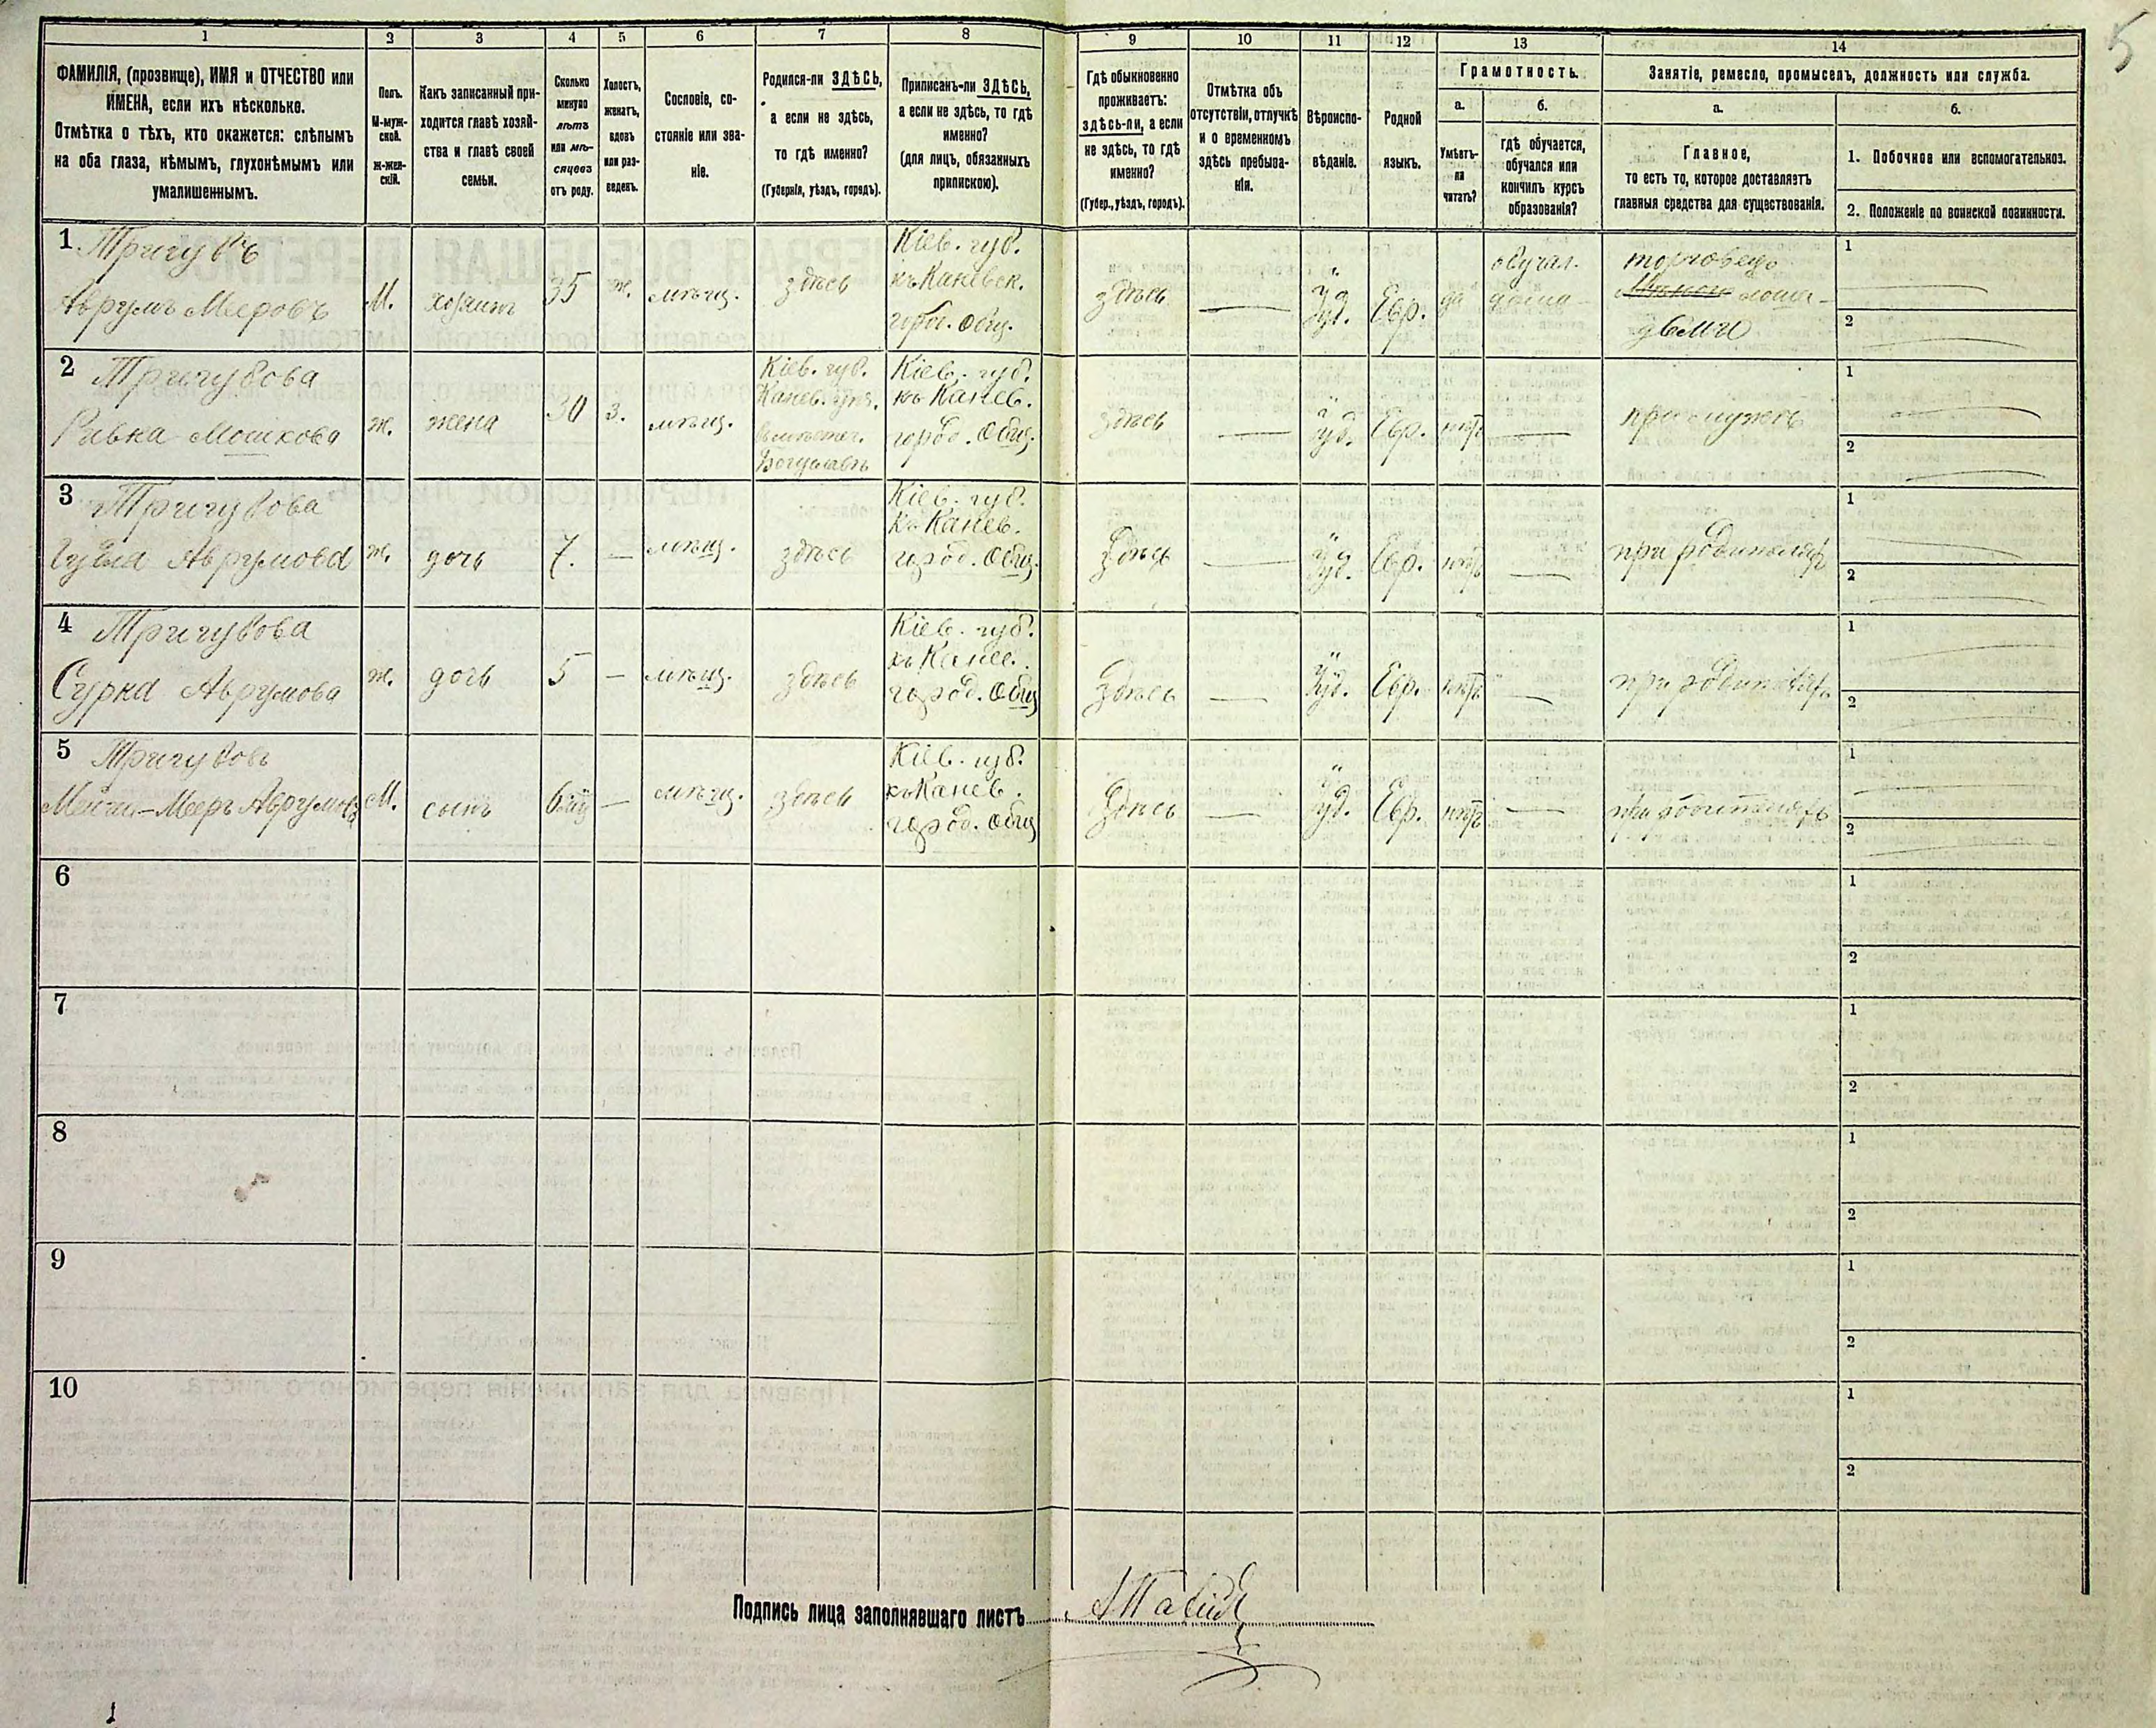 5
1 2 3 4 5 6 7 8 9 10 11 12 13 14
ФАМИЛІЯ, (прозвище), ИМЯ и ОТЧЕСТВО или
ИМЕНА, если ихъ нѣсколько.
Отмѣтка о тѣхъ, кто окажется: слѣпымъ
на оба глаза, нѣмымъ, глухонѣмымъ или
умалишеннымъ.
Полъ.
М-муж-
ской.
Ж-жен-
скій.
Какъ записанный при-
ходится главѣ хозяй-
ства и главѣ своей
семьи.
Сколько
минуло
лѣтъ
или мѣ-
сяцевъ
отъ роду.
Холостъ,
женатъ,
вдовъ
или раз-
веденъ.
Сословіе, со-
стояніе или зва-
ніе.
Родился-ли ЗДѢСЬ,
а если не здѣсь,
то гдѣ именно?
(Губернія, уѣздъ, городъ).
Приписанъ-ли ЗДѢСЬ,
а если не здѣсь, то гдѣ
именно?
(для лицъ, обязанныхъ
припискою).
Гдѣ обыкновенно
проживаетъ:
здѣсь-ли, а если
не здѣсь, то гдѣ
именно?
(Губер., уѣздъ, городъ).
Отмѣтка объ
отсутствіи, отлучкѣ
и о временномъ
здѣсь пребыва-
ніи.
Вѣроиспо-
вѣданіе.
Родной
языкъ.
Грамотность.
а.
Умѣетъ-
ли
читать?
б.
гдѣ обучается,
обучался или
кончилъ курсъ
образованія?
Занятіе, ремесло, промыселъ, должность или служба.
а.
Главное,
то есть то, которое доставляетъ
главныя средства для существованія.
б.
1. Побочное или вспомогательноз.
2. Положеніе по воинской повинности.
1 Тригувъ
Аврумъ Мееровъ
М.
хозяинъ
35
ж.
мѣщ.
здѣсь
Кіев. губ.
къ Каневск.
город. общ.
здѣсь
—
Іуд.
Евр.
да
обучал.
дома
торговецъ
лоша-
дьми
1
2
2 Тригувова
Ривка Мошкова
ж.
жена
30
з.
мѣщ.
Кіев. губ.
Канев. уѣз.
Богуславѣ
Кіев. губ.
къ Канев.
город. общ.
здѣсь
—
Іуд.
Евр.
нѣтъ
—
при мужѣ
1
2
3 Тригувова
Авромова
ж.
дочь
7.
—
мѣщ.
здѣсь
Кіев. губ.
къ Канев.
город. общ.
Здѣсь
—
Іуд.
Евр.
нѣтъ
—
при родителяхъ
1
2
4 Тригувова
Сурка Аврумова
ж.
дочь
5
—
мѣщ.
здѣсь
Кіев. губ.
къ Канев.
город. общ
Здѣсь
—
Іуд.
Евр.
нѣтъ
—
при родителяхъ
1
2
5 Тригувовъ
Мееръ Аврумовъ
М.
сынъ
—
мѣщ.
здѣсь
Кіев. губ.
къ Канев.
город. общ
Здѣсь
—
Іуд.
Евр.
нѣтъ
—
при родителяхъ
1
2
6
1
2
7
1
2
8
1
2
9
1
2
10
1
2
Подпись лица заполнявшаго листъ
1